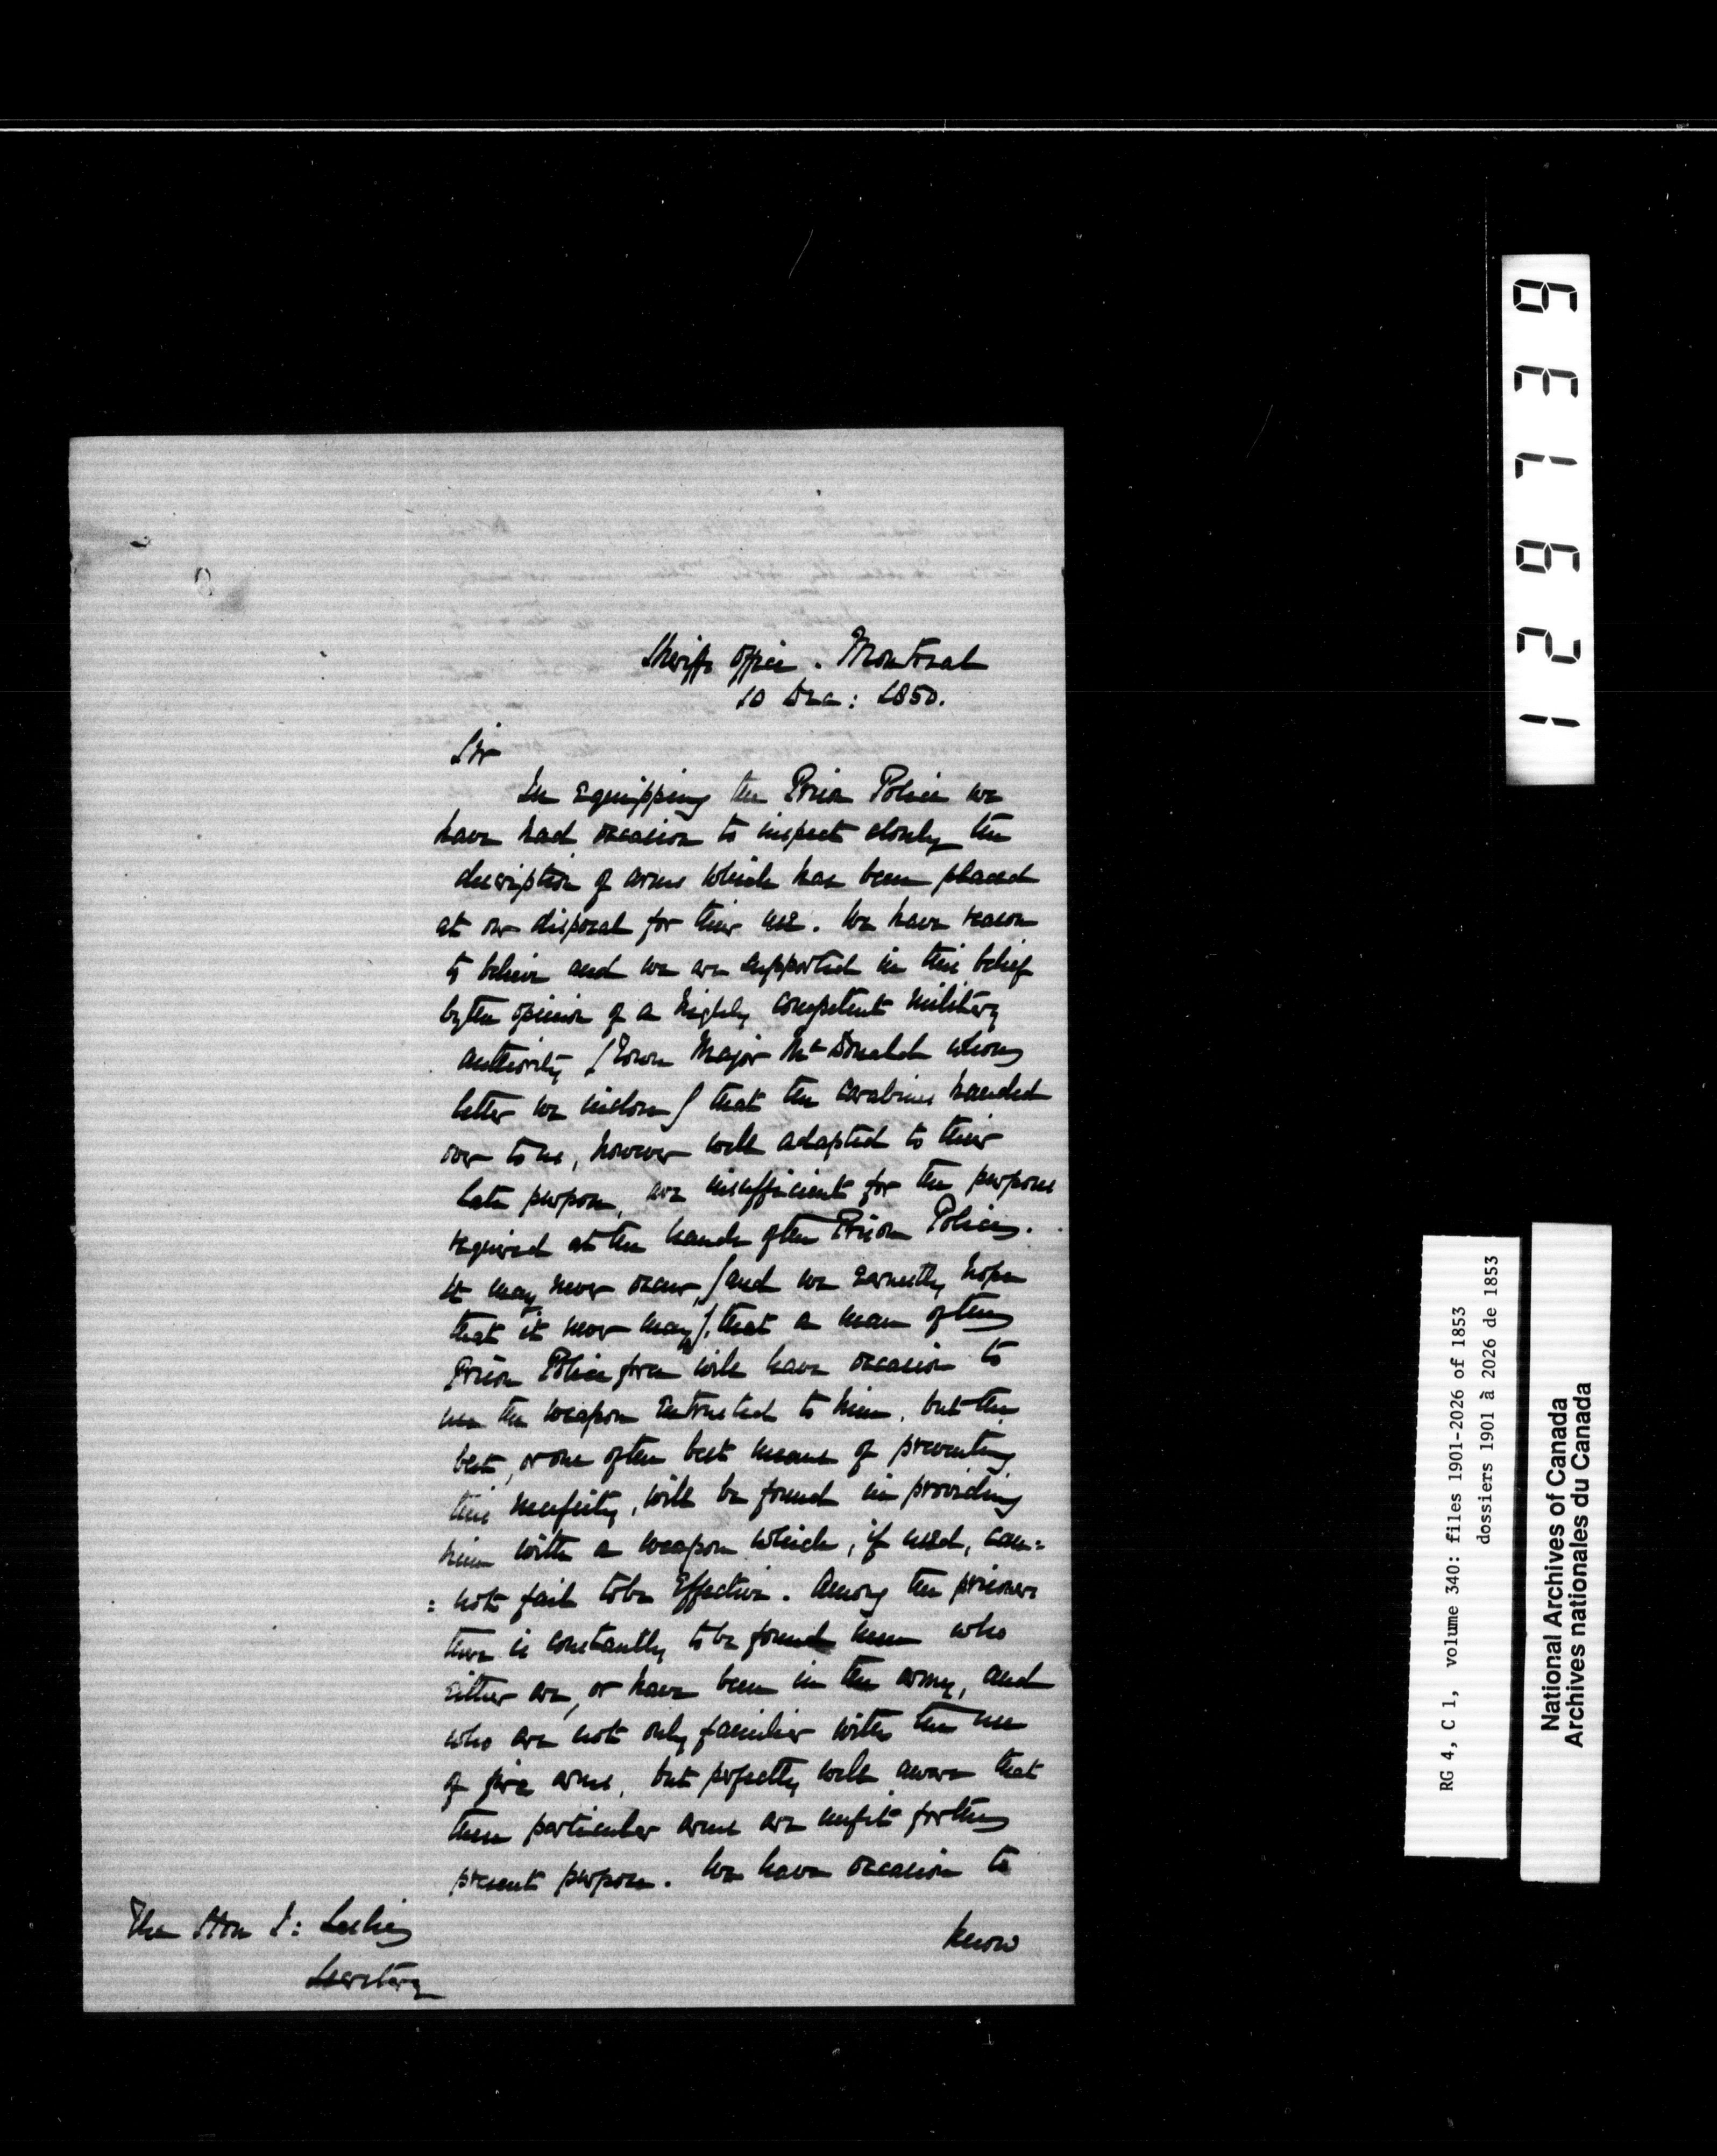 Sheriffs Office. Montreal
10 Dec: 1850.
Sir
In equipping the Prison Police we
have had occasion to inspect closely the
description of arms which has been placed
at our disposal for their use. We have reason
to believe and we are supported in this belief
by the opinion of a highly competent military
authority (Town Major McDonald whose
letter we inclose) that the carabines handed
over to us, however well adapted to their
late purpose, are insufficient for the purpose
required at the hands of the Prison Police.
It may never occur, (and we earnestly hope
that it never may), that a man of the
Prison Police force will have occasion to
use the weapon entrusted to him, but the
best, or one of the best means of preventing
this necessity, will be found in providing
him with a weapon which, if used, can=
=not fail to be effective. Among the prisoners
there is constantly to be found men who
either are, or have been in the army, and
who are not only familiar with the use
of fire arms, but perfectly well aware that
these particular arms are unfit for the
present purpose. We have occasion to
know
The Hon J: Leslie
Secretary
129739
RG 4, C 1, volume 340: files 1901-2026 of 1853
dossiers 1901 à 2026 de 1853
National Archives of Canada
Archives nationales du Canada